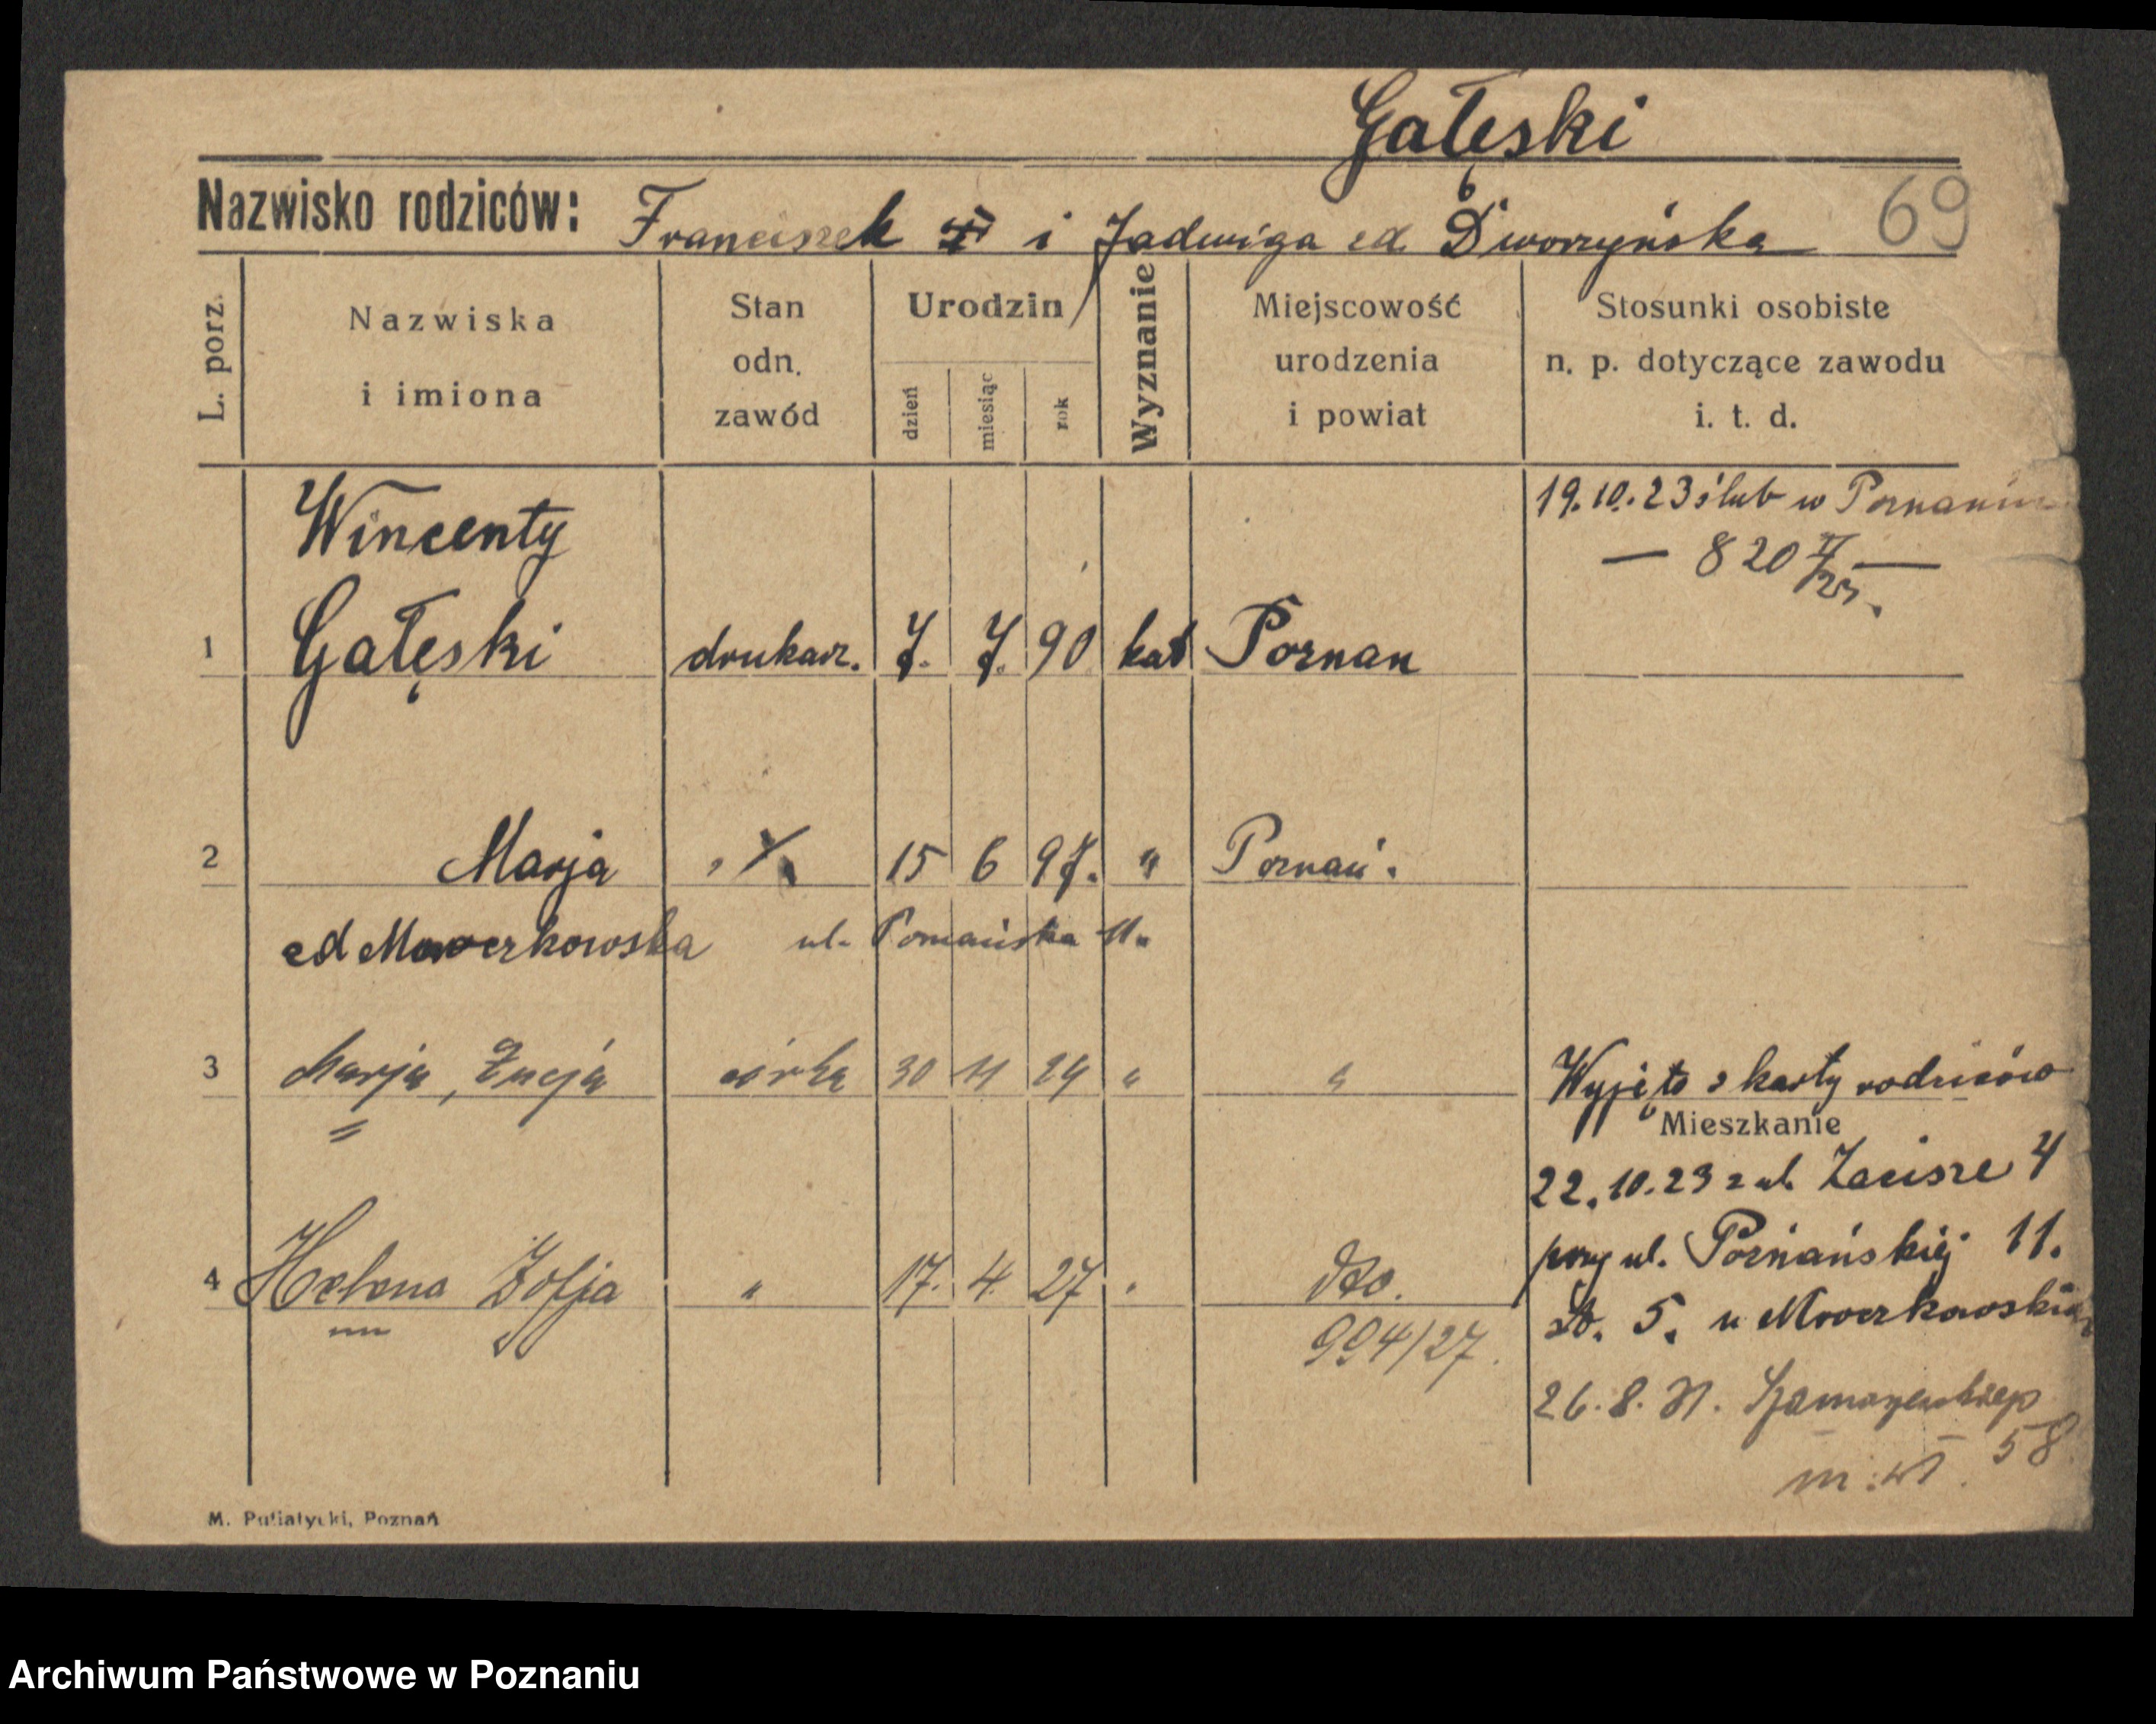 Gałęski
69
Nazwisko rodziców: Franciszek i Jadwiga zd Dworzyńska
L. porz.
Nazwiska
i imiona
Stan
odn.
zawód
Urodzin
dzień
miesiąc
rok
Wyznanie
Miejscowość
urodzenia
i powiat
Stosunki osobiste
n. p. dotyczące zawodu
i. t. d.
19.10.23 ślub w Poznaniu
— 820 —
Wincenty
1 Gałęski drukarz. 7. 7. 90 kat Poznan
2 Marja 15 6 97. " Poznań.
zd ul. Poznańska 11.
3 Marja, Łucja córka 30 11 24 " " Wyjęto z karty rodziców
Mieszkanie
22.10.23 z ul. Zacisze 4
przy ul. Poznańskiej 11.
4 Helena Zofja " 17. 4. 27 " dto.
5. u
994/27.
26.8.31.
58
M. Putiatycki, Poznań
Archiwum Państwowe w Poznaniu